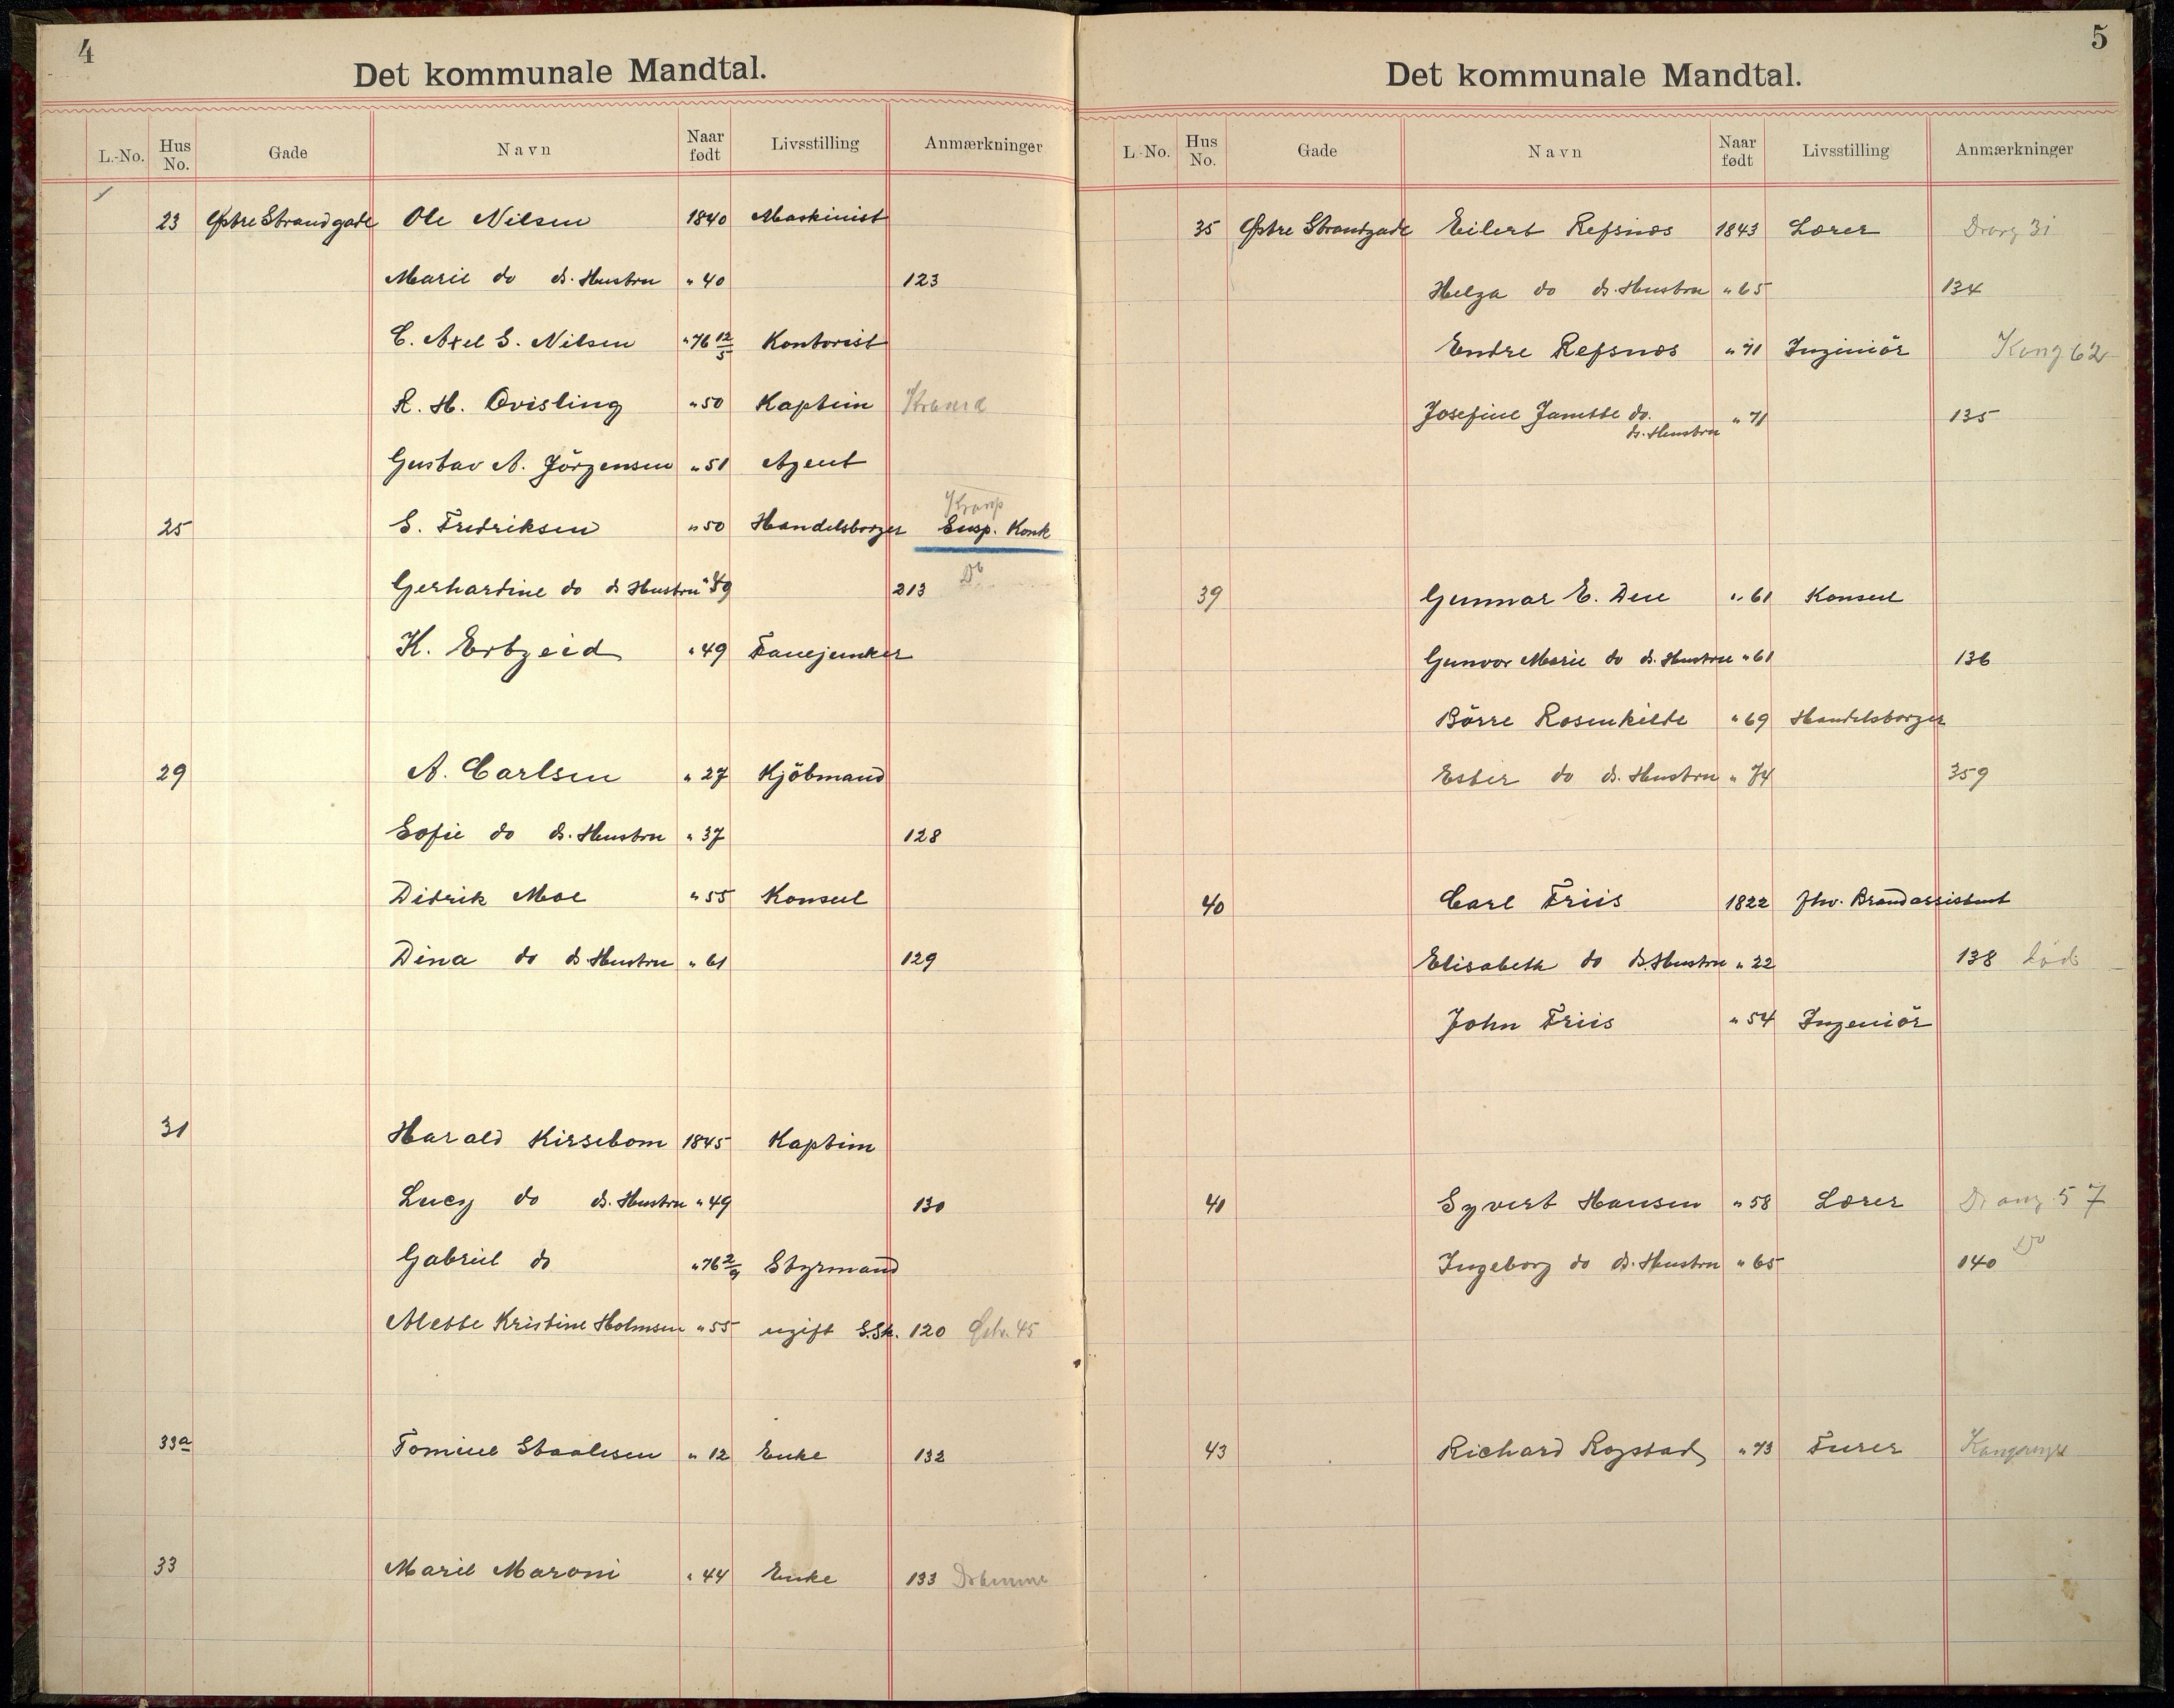 4
Det kommunale Mandtal.
L.-No. Hus No. Gade Navn Naar født Livsstilling Anmærkninger
23 Østre Strandgade Ole Nilsen 1840 Maskinist
Marie do ds. Hustru " 40 123
C. Axel S. Nilsen " 76 12/5 Kontorist
R. H. Qvisling " 50 Kaptein
Gustav A. Jörgensen " 51 Agent
25 S. Fredriksen " 50 Handelsborger Susp. Konk
Gerhardine do ds Hustru " 49 213 Do
K. Ertzeid " 49 Fanejunker
29 A. Carlsen " 27 Kjöbmand
Sofie do ds. Hustru " 37 128
Didrik Moe " 55 Konsul
Dina do ds Hustru " 61 129
31 Harald Kirsebom 1845 Kaptein
Lucy do ds. Hustru " 49 130
Gabriel do " 76 2/9 Styrmand
Alette Kristine Holmsen " 55 ugift S.St. 120
33a Tomine Staalesen " 12 Enke 132
33 Marie Maroni " 44 Enke 133
5
Det kommunale Mandtal.
L.-No. Hus No. Gade Navn Naar født Livsstilling Anmærkninger
35 Østre Strandgade Eilert Refsnæs 1843 Lærer Drong 31
Helga do ds. Hustru " 65 134
Endre Refsnæs " 71 Ingeniör Kong 62
Josefine Janette do.
ds. Hustru " 71 135
39 Gunnar E. Due " 61 Konsul
Gunvor Marie do ds. Hustru " 61 136
Börre Rosenkilde " 69 Handelsborger
Ester do ds. Hustru " 74 359
40 Carl Friis 1822 fhv. Brandassistent
Elisabeth do ds. Hustru " 22 138 död
John Friis " 54 Ingeniör
41 Syvert Hansen " 58 Lærer Drong 57
Ingeborg do ds. Hustru " 65 140 Do
43 Richard Rogstad " 73 Furer